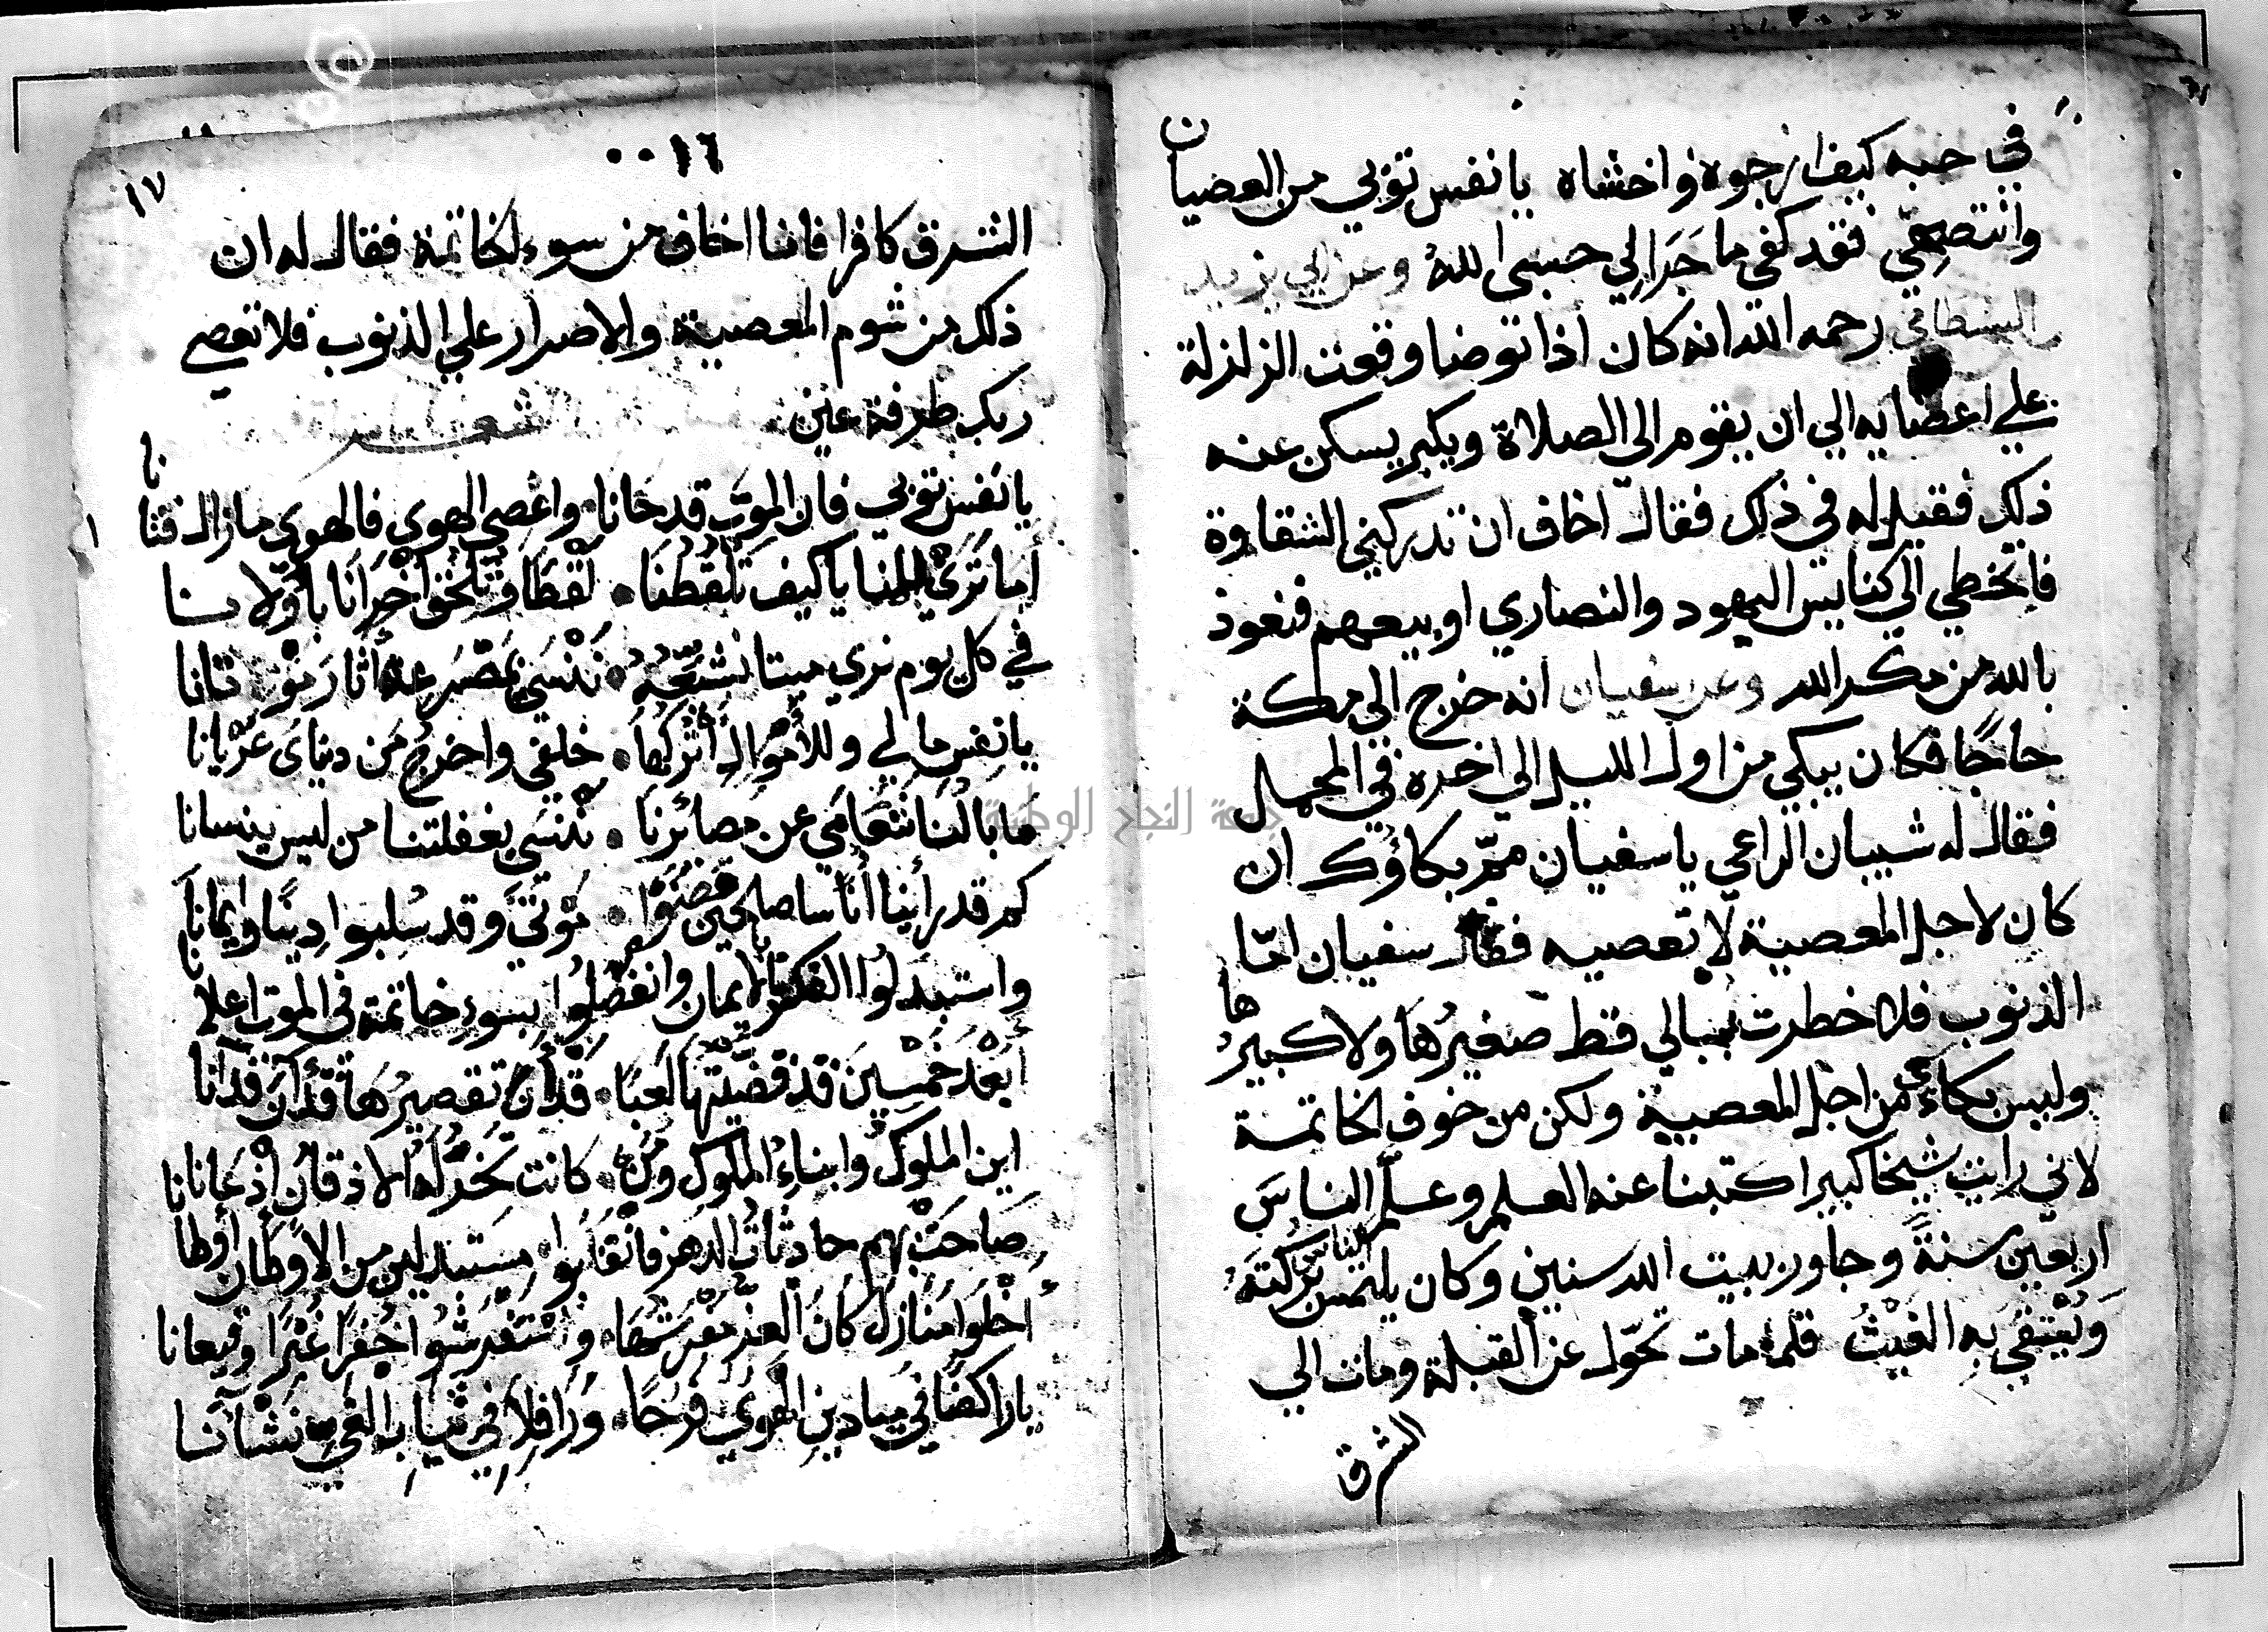 في حبه كيف ارجوه واخشاه يا نفس توبي من العصيان
وانتصحي فقد كفى ما جرا لي حسبى الله وعن ابي يزيد
البسطامي رحمه الله انه كان اذا توضا وقعت الزلزلة
علي اعضايه الي ان يقوم الى الصلاة ويكبر يسكن عنه
ذلك فقيل له في ذلك فقال اخاف ان تدركني الشقاوة
فاتخطي الي كنايس اليهود والنصاري او بيعهم فنعوذ
بالله من مكر الله وعن سفيان انه خرج الي مكة
حاجًا فكان يبكي من اول الليل الي اخره في المحمل
فقال له شيبان الراعي يا سفيان ممّ بكاؤك ان
كان لاجل المعصية لا تعصيه فقال سفيان امّا
الذنوب فلا خطرت ببالي قط صغيرُها ولا كبيرُها
وليس بكاءي من اجل المعصية ولكن من خوف الخاتمة
لاني رايت شيخا كبيرا كتبنا عنه العلم وعلّم الناسَ
اربعين سنةً وجاور بيت الله سنين وكان يلتمس الناسُ بركتهُ
ويُستقي به الغيثُ فلما مات تحوّل عن القبلة ومات الي
الشرق
١٦
١٧
الشرق كافرا فانا اخاف من سوء لخاتمة فقال له ان
ذلك من شوم المعصية والاصرار علي الذنوب فلا تعصي
ربك طرفة عين شعر
يا نفس توبي فان الموتَ قد حَانا واعصِي الهوي فالهوي ما زال فتانا
أما تَرَيْ المنايا كيف تَلْقُطُنَا لَقْطًا وتُلحق اُخْرَانَا باُولانا
في كل يوم نري ميتا نشيّعُهُ نَنْسَي بمَصْرَعِه أثارَ مَوْتانا
يا نفسِ ما لي وللأمْوالِ أتْرُكُها خلفي واخرجُ من دنيايَ عُرْيانا
ما بالُنا نتعَامَي عن مَصائرنا نَنْسَي بغفلتنا من ليس ينسانا
كم قد رأينا أُناسا صالحين قضَوْا مَوْتَي وقد سُلبوا دينًا وايمانَا
واستبدَلُوا الكفرَ بالايمان وانفصَلُوا بسوءِ خاتمة في الموت اعلانا
أبَعْدَ خَمْسِينَ قد قضّيْتَها لَعِبًا قد آن تقصيرُها قد آنَ قد آنا
اين الملوكُ وابناءُ الملوكِ ومَنْ كانت تَخِرُّ لَهُ الاذقانُ إذْعَانانا
صَاحَتْ بهم حادثاتُ الدهر فانقلَبُوا مستبدلين من الاوطانِ أوطانا
اخْلَوا منَازلَ كانَ العِزُّ مفرشَهَا واستَفْرَشُوا حُفَرًا غُبْرًا وقيعانا
يا راكضًا في ميادينِ الهَوَي فَرِحًا ورَافِلاً في ثيابِ الغَيِّ نشْآنا
جامعة النجاح الوطنية